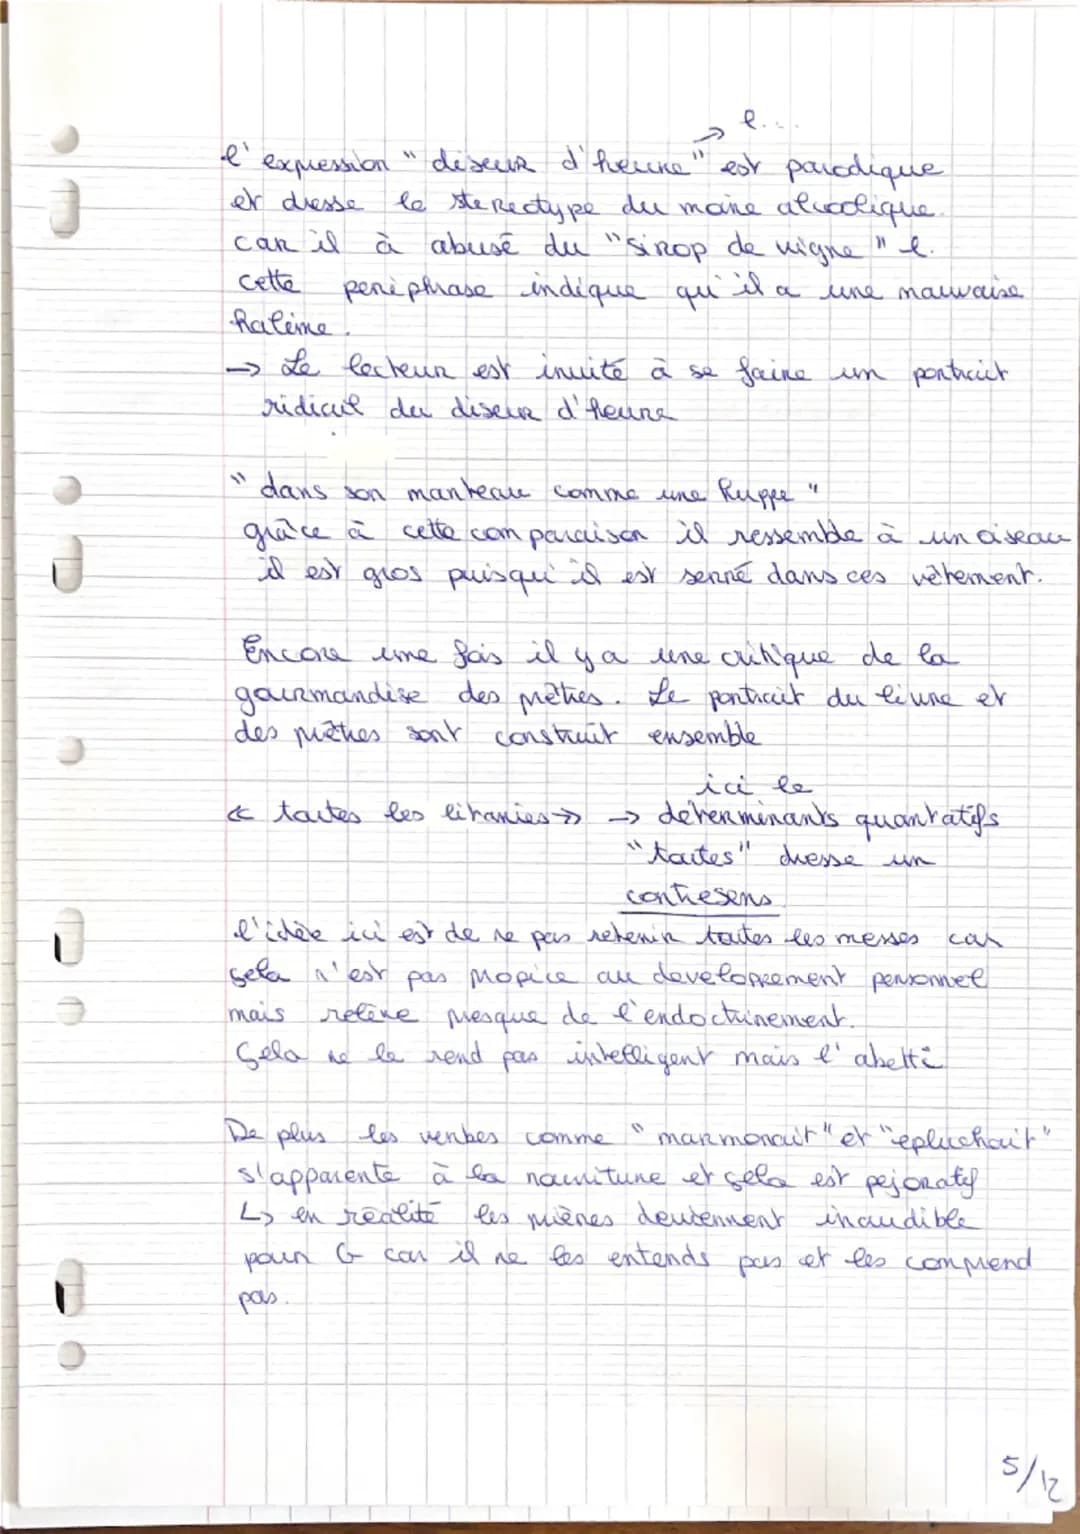 → l....
l'expression "diseur d'heure" est parodique
et dresse le stereotype du moine alcoolique.
car il à abusé du "sirop de vigne" l.
cette periphrase indique qu'il a une mauvaise
haleine.
→ Le lecteur est invité à se faire un portrait
ridicul du diseur d'heure
"dans son manteau comme une huppe"
grâce à cette comparaison il ressemble à un oiseau
il est gros puisqu'il est serré dans ces vêtement.
Encore une fois il y a une critique de la
gourmandise des prêtres. Le portrait du livre et
des prêtres sont construit ensemble
ici le
« toutes les litanies » → déterminants quantatifs
"toutes" dresse un
contresens
l'idée ici est de ne pas retenir toutes les messes car
sela n'est pas propice au developpement personnel
mais relève presque de l'endoctrinement.
Sela ne le rend pas intelligent mais l'abetti
De plus les verbes comme "marmonait" et "epluchait"
s'apparente à la nourriture et sela est pejoratif
↳ en réalité les prières deviennent inaudible
pour G car il ne les entends pas et les comprend
pas.
5/12